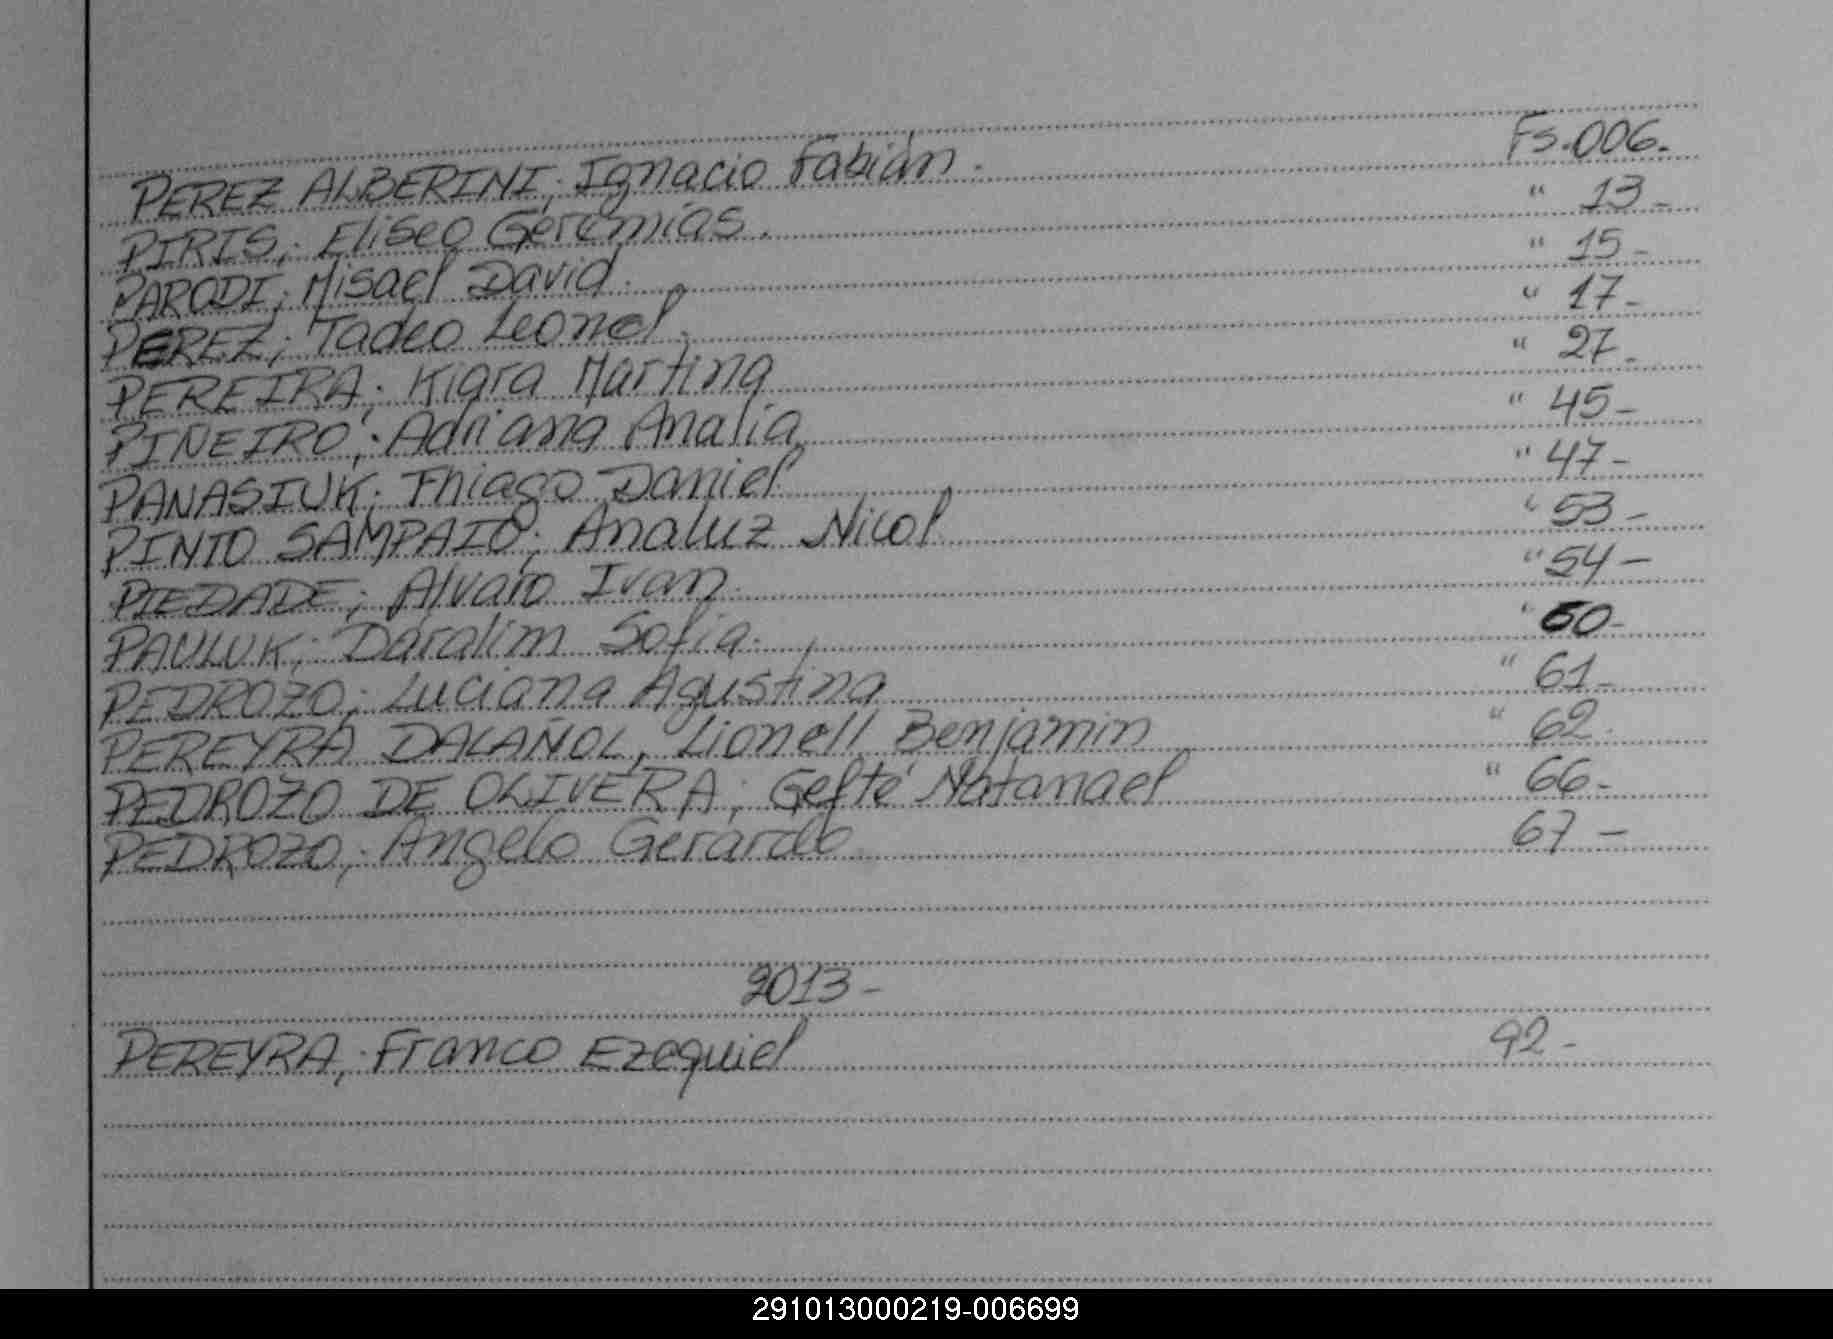 PEREZ ALBERINI; Ignacio Fabián. Fs.006.
PIRIS; Eliseo Geremias. " 13-
PARODI; Misael David. " 15-
PEREZ; Tadeo Leonel. " 17-
PEREIRA; Kiara Martina " 27-
PIÑEIRO; Adriana Analia. " 45-
PANASIUK; Thiago Daniel " 47-
PINTO SAMPAIO; Analuz Nicol " 53-
PIEDADE; Alvaro Ivan. " 54-
PAULUK; Daralim Sofia. " 60-
PEDROZO; Luciana Agustina " 61-
PEREYRA DALAÑOL, Lionell Benjamin " 62-
PEDROZO DE OLIVERA; Gefté Natanael " 66-
PEDROZO; Angelo Gerardo 67-
2013-
PEREYRA; Franco Ezequiel 92-
291013000219-006699